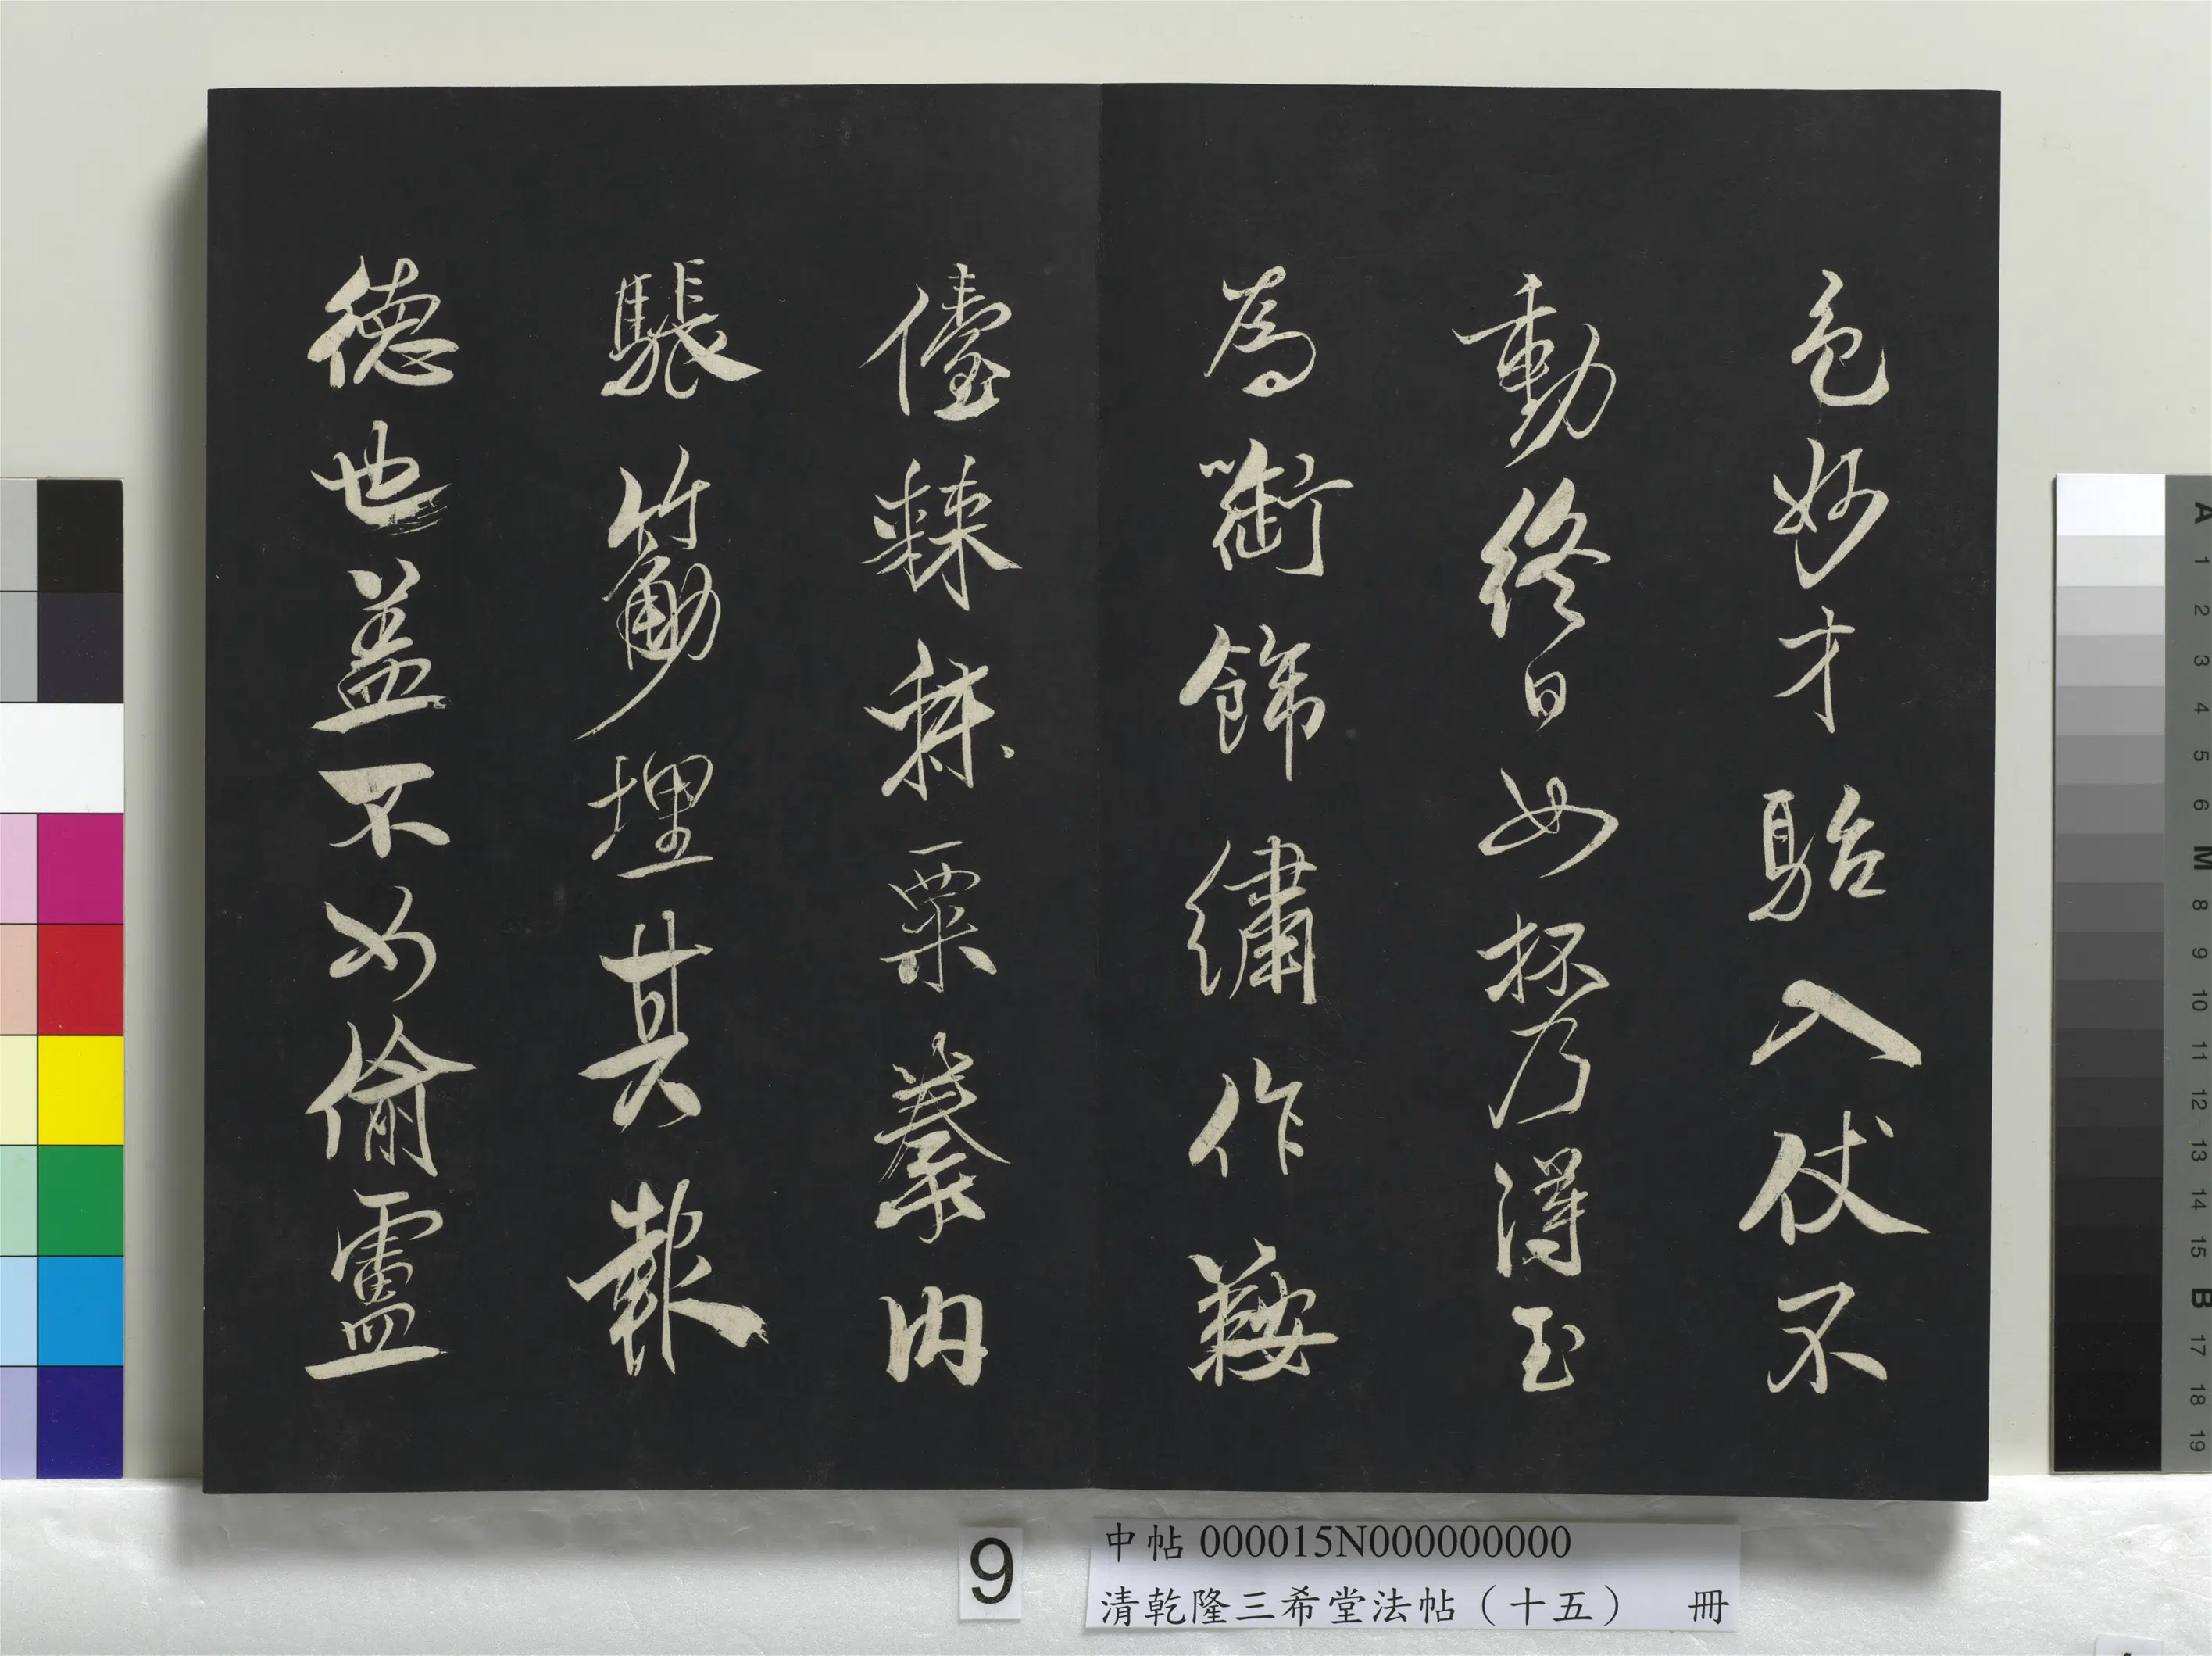 色妙才駘入仗不
動終日如杯乃得玉
為銜飾繡作鞍
儓棘秣粟豢肉
脹筋埋其報
德也盖不如偷盧
9
中帖 000015N000000000
清乾隆三希堂法帖（十五） 冊
A 1 2 3 4 5 6 M 8 9 10 11 12 13 14 15 B 17 18 19